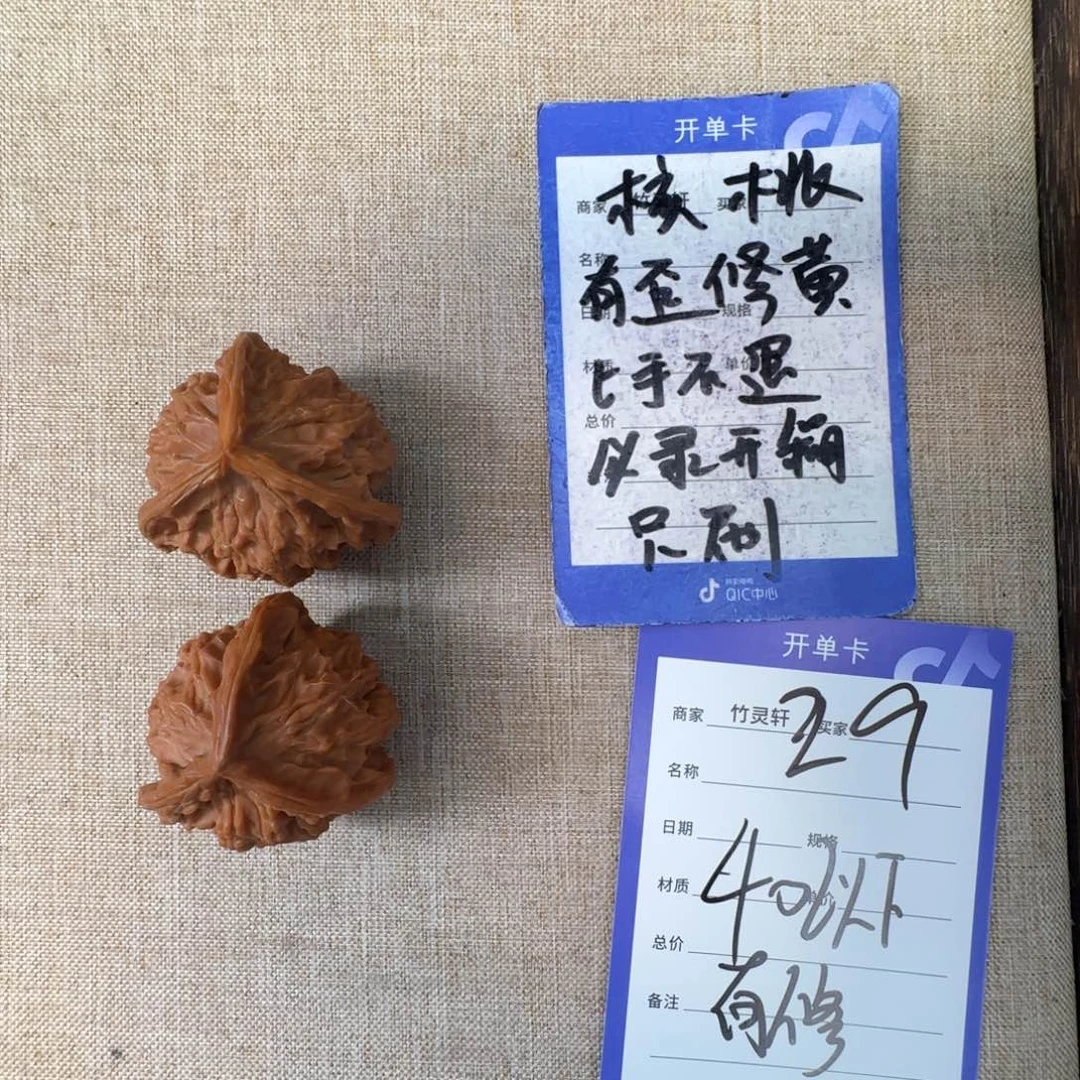 开单卡
核桃
商家 竹灵轩 买家
名称
有歪修黄
日期 规格
材质 单价
上手不退
总价
必录开箱
只刷
抖音电商
QIC中心
开单卡
商家 竹灵轩 买家
29
名称
日期 规格
材质 单价
40以下
总价
备注 有修